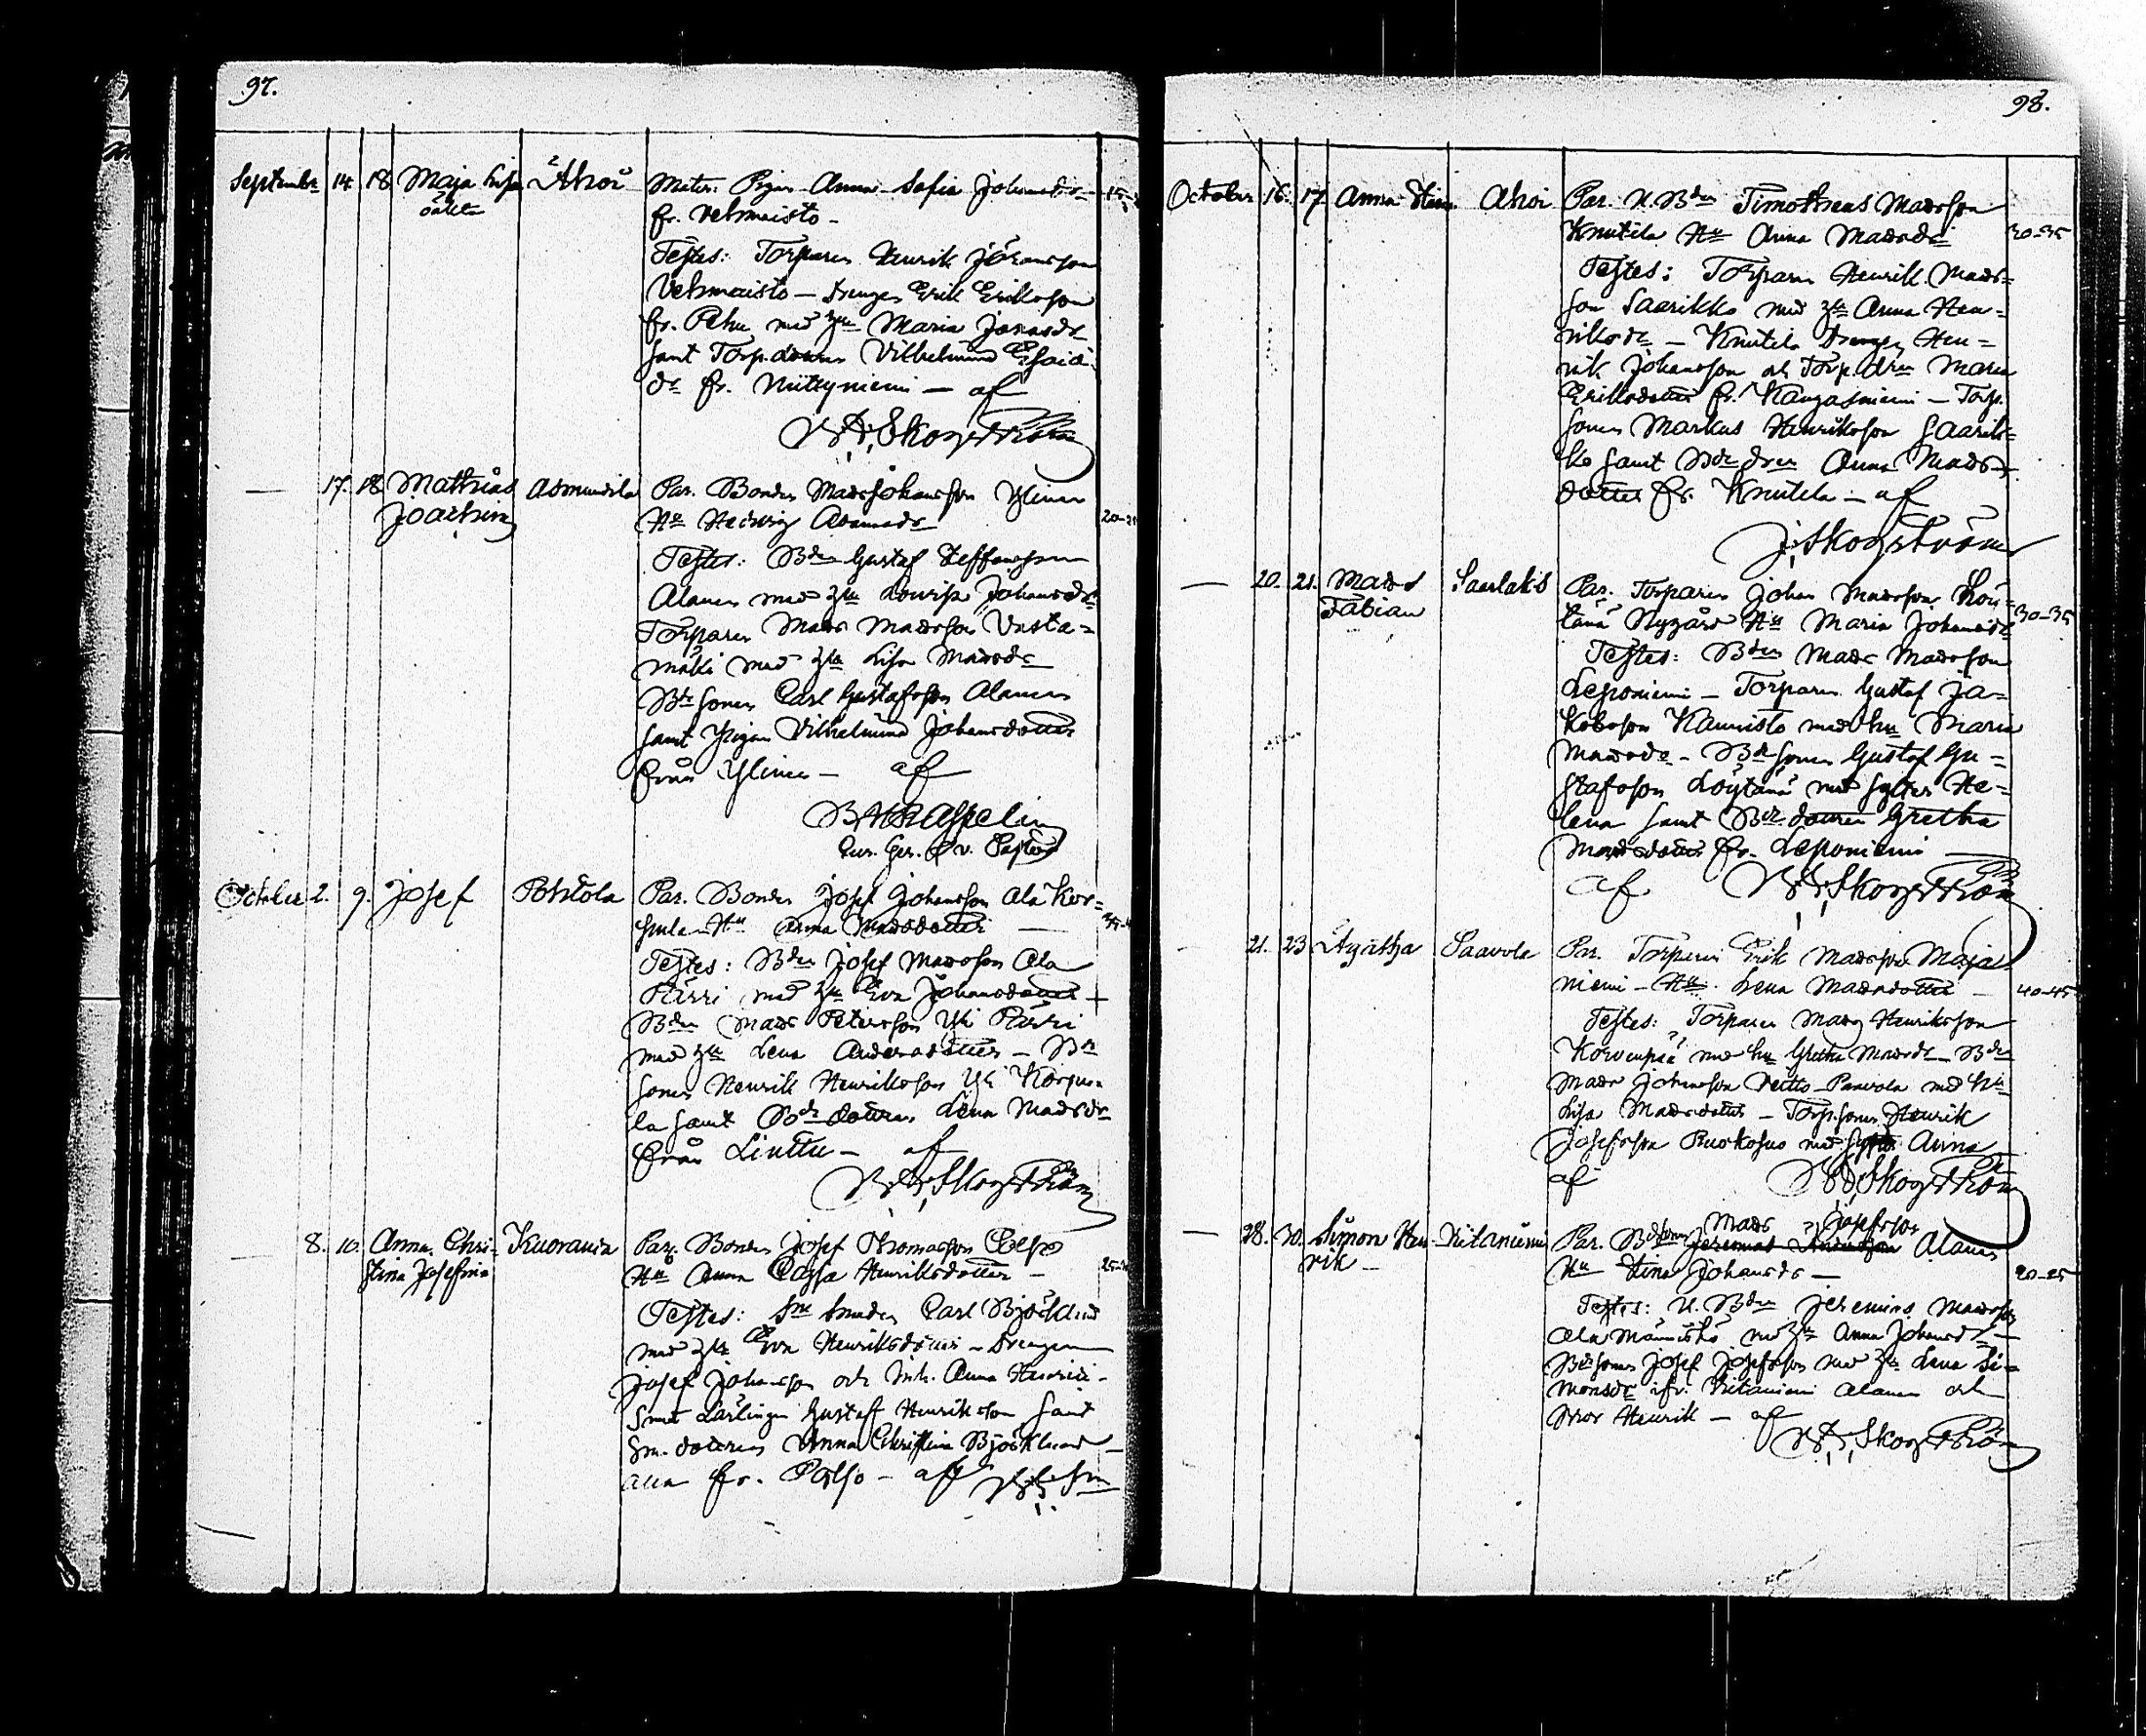 97.
September 14. 18. Maja Lisa Ahoi Mater: Pigan Anna Sofia Johansdr 15-
oäkta fr. Vehmaisto -
Testes: Torparen Henrik Johansson
Vehmaisto - Drengen Erik Eriksson
fr. Pehu med hu Maria Jonasdr
samt Torp.dottren Vilhelmina Esaiæ
dr fr. Niittyniemi - af
Skogström
- 17. 18. Mathias Asmundila Par. Bonden Mads Johansson Ylinen 20-25
Joachim Hu Hedvig Adamsdr
Testes: Bden Gustaf Steffansson
Alanen med hu Lovisa Johansdr
Torparen Mads Madsson Uusta=
mäki med hu Lisa Madsdr
Bdesonen Carl Gustafsson Alanen
samt Pigan Vilhelmina Johansdotter
från Ylinen - af
Aspelin
October 2. 9. Josef Pohitola Par. Bonden Josef Johansson Ala Kor=
pula Hu Anna Madsdotter -
Testes: Bden Josef Madsson Ala
Pärri med hu Eva Johansdotter -
Bden Mads Petersson Yli Pärri
med hu Lena Andersdotter - Bde
sonen Henrik Henriksson Yli Korpu=
la samt Bdedottren Lena Madsdr
från Linttu - af
Skogström
- 8. 10. Anna Chri= Kuorania Par. Bonden Josef Thomasson
stina Josefina Hu Anna Cajsa Henriksdotter -
Testes: Smeden Carl Björklund
med hu Eva Henriksdotter - Drengen
Josef Johansson och Anna
Lärlingen Gustaf Henriksson samt
Sm. dottren Anna Christina Björklund -
alla fr. - af
98.
October 16. 17. Anna Stina Ahoi Par. N. Bden Timotheus Madsson
Knutila Hu Anna Madsdr 30-35
Testes: Torparen Henrik Mads=
son Saarikko med hu Anna Hen=
riksdr - Knutila Drengen Hen=
rik Johansson och Torp.dren Maria
Eriksdotter fr. Kangasniemi - Torp.
sonen Markus Henriksson Saarik=
ko samt Bdedren Anna Mads=
dotter fr. Knutila - af
J. Skogström
- 20. 21. Mads Saarlaks Par. Torparen Johan Madsson Löy=
Fabian täna Nygård Hu Maria Johansdr 30-35
Testes: Bden Mads Madsson
Leponiemi - Torparen Gustaf Ja=
kobsson Kaunisto med hu Maria
Madsdr - Bdesonen Gustaf Gu=
stafsson Löytänä med syster He=
lena samt Bdedottren Gretha
Madsdotter fr. Leponiemi -
af Skogström
- 21. 23 Agatha Saavola Par. Torparen Erik Madsson Maja=
niemi - Hu Lena Madsdotter - 40-45
Testes: Torparen Mads Henriksson
Korvenpää med hu Gretha Madsdr - Bden
Mads Johansson Paavola med hu
Lisa Madsdotter - Torpsonen Henrik
Josefsson Ruokosuo med syster Anna
af Skogström
- 28. 30. Simon Hen= Kitaniemi Par. Bdesonen Mads Josefsson Alanen
rik - Hu Stina Johansdr - 20-25
Testes: N. Bden Jeremias Madsson
Ala Männistö med hu Anna Johansdr -
Bdesonen Josef Josefsson med hu Lena Si=
monsdr ifr. Kitaniemi Alanen och
Bror Henrik - af
Skogström